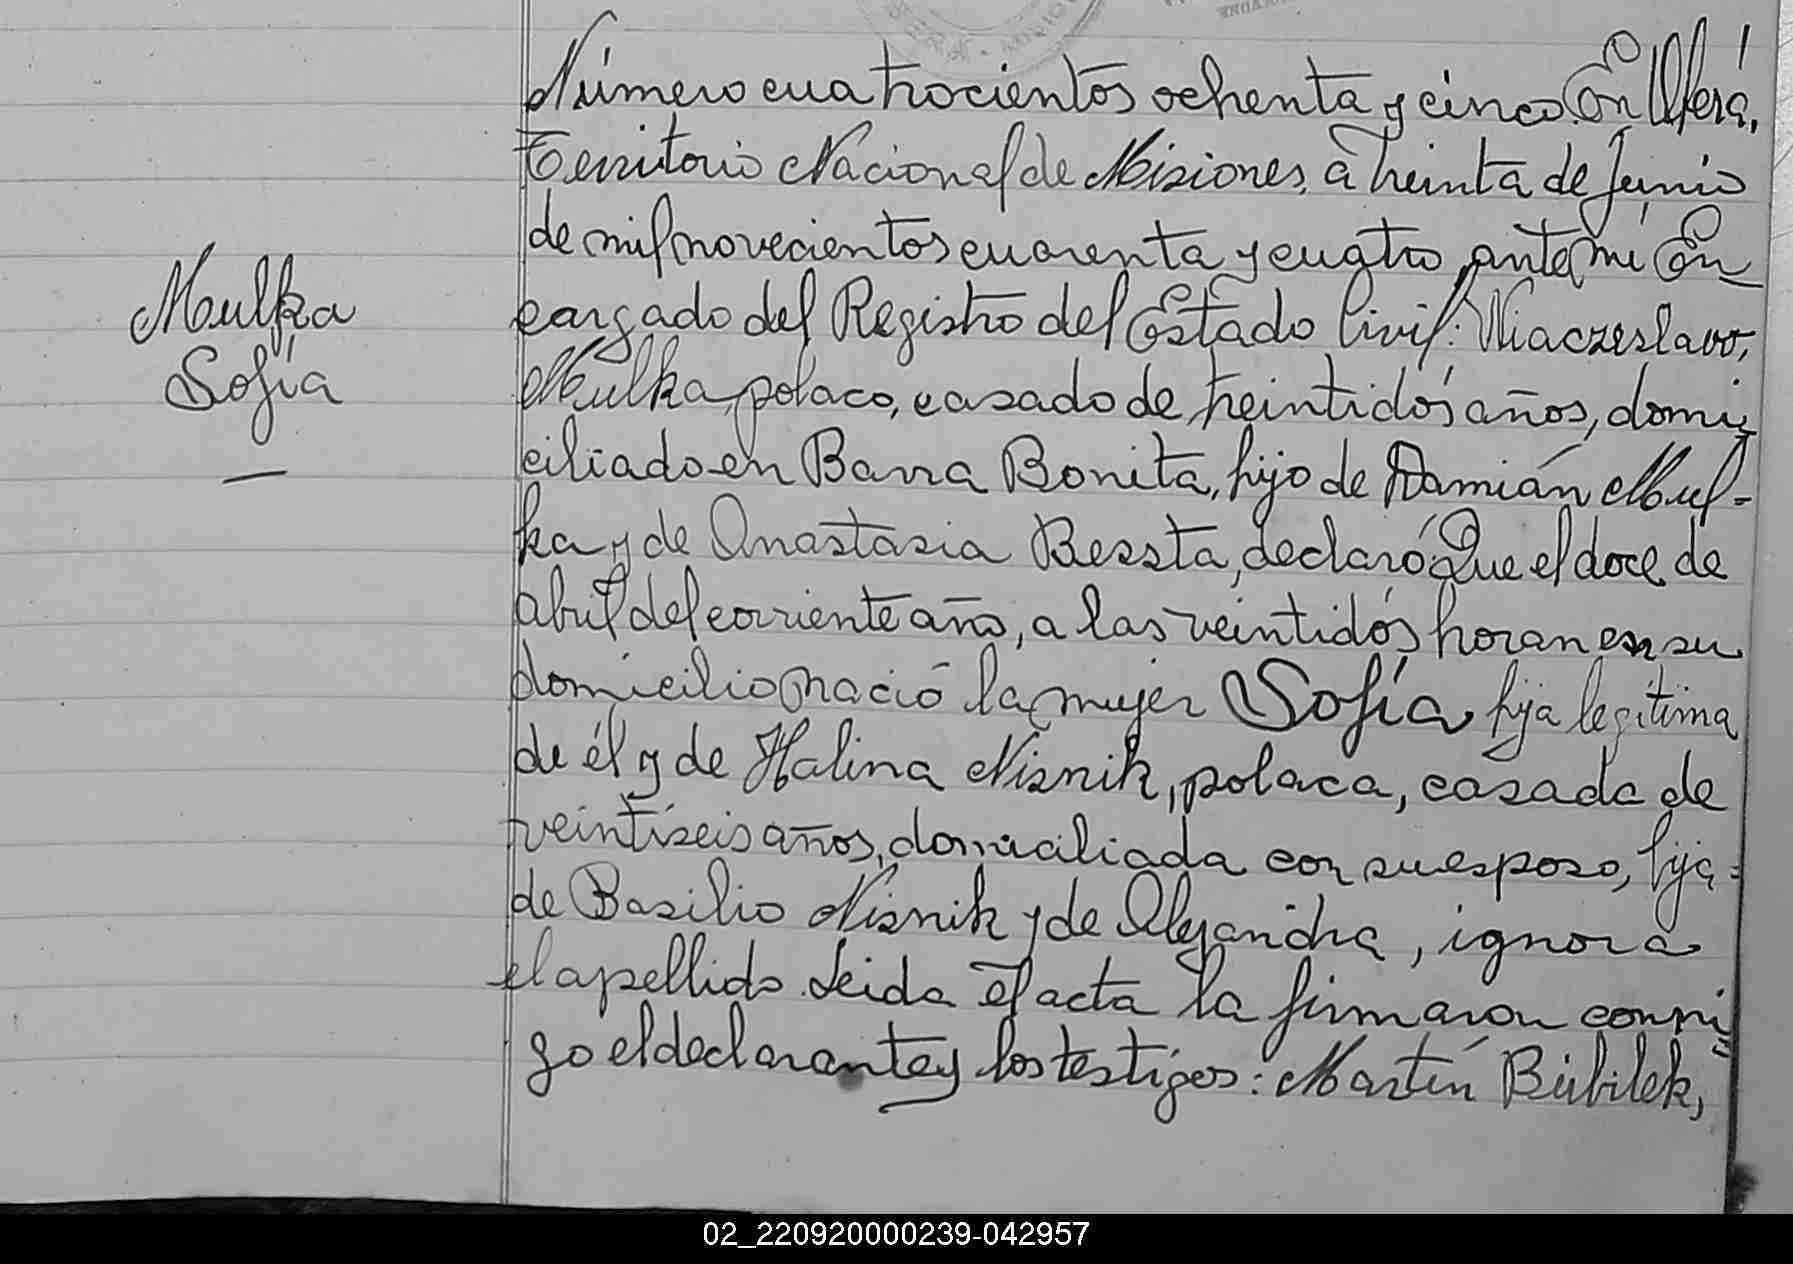 Número cuatrocientos ochenta y cinco. En Oberá,
Territorio Nacional de Misiones, a treinta de Junio
de mil novecientos cuarenta y cuatro, ante mi En
cargado del Registro del Estado Civil: Wiaczeslavo,
Mulka, polaco, casado de treintidós años, domi
ciliado en Barra Bonita, hijo de Damián Mul-
ka y de Anastasia Bessta, declaró: Que el doce de
abril del corriente año, a las veintidós horas en su
domicilio nació la mujer Sofía hija legítima
de él y de Halina Nisnik, polaca, casada de
veintiseis años, domiciliada con su esposo, hija
de Basilio Nisnik y de Alejandra, ignora
el apellido. Leida el acta la firmaron conmi
go el declarante y los testigos: Martín Bubilek,
Mulka
Sofía
02_220920000239-042957